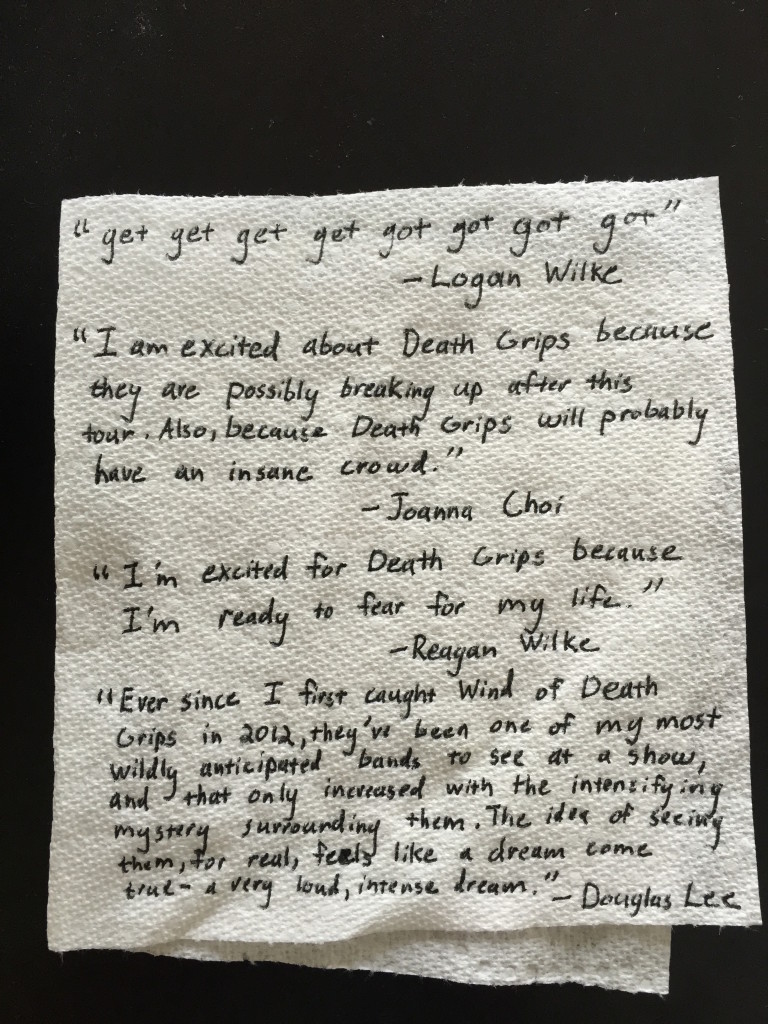 "get get get get got got got got"
-Logan Wilke
"I am excited about Death Grips because
they are possibly breaking up after this
tour. Also, because Death Grips will probably
have an insane crowd."
-Joanna Choi
"I'm excited for Death Grips because
I'm ready to fear for my life."
-Reagan Wilke
"Ever since I first caught wind of Death
Grips in 2012, they've been one of my most
wildly anticipated bands to see at a show,
and that only increased with the intensifying
mystery surrounding them. The idea of seeing
them, for real, feels like a dream come
true- a very loud, intense dream." - Douglas Lee